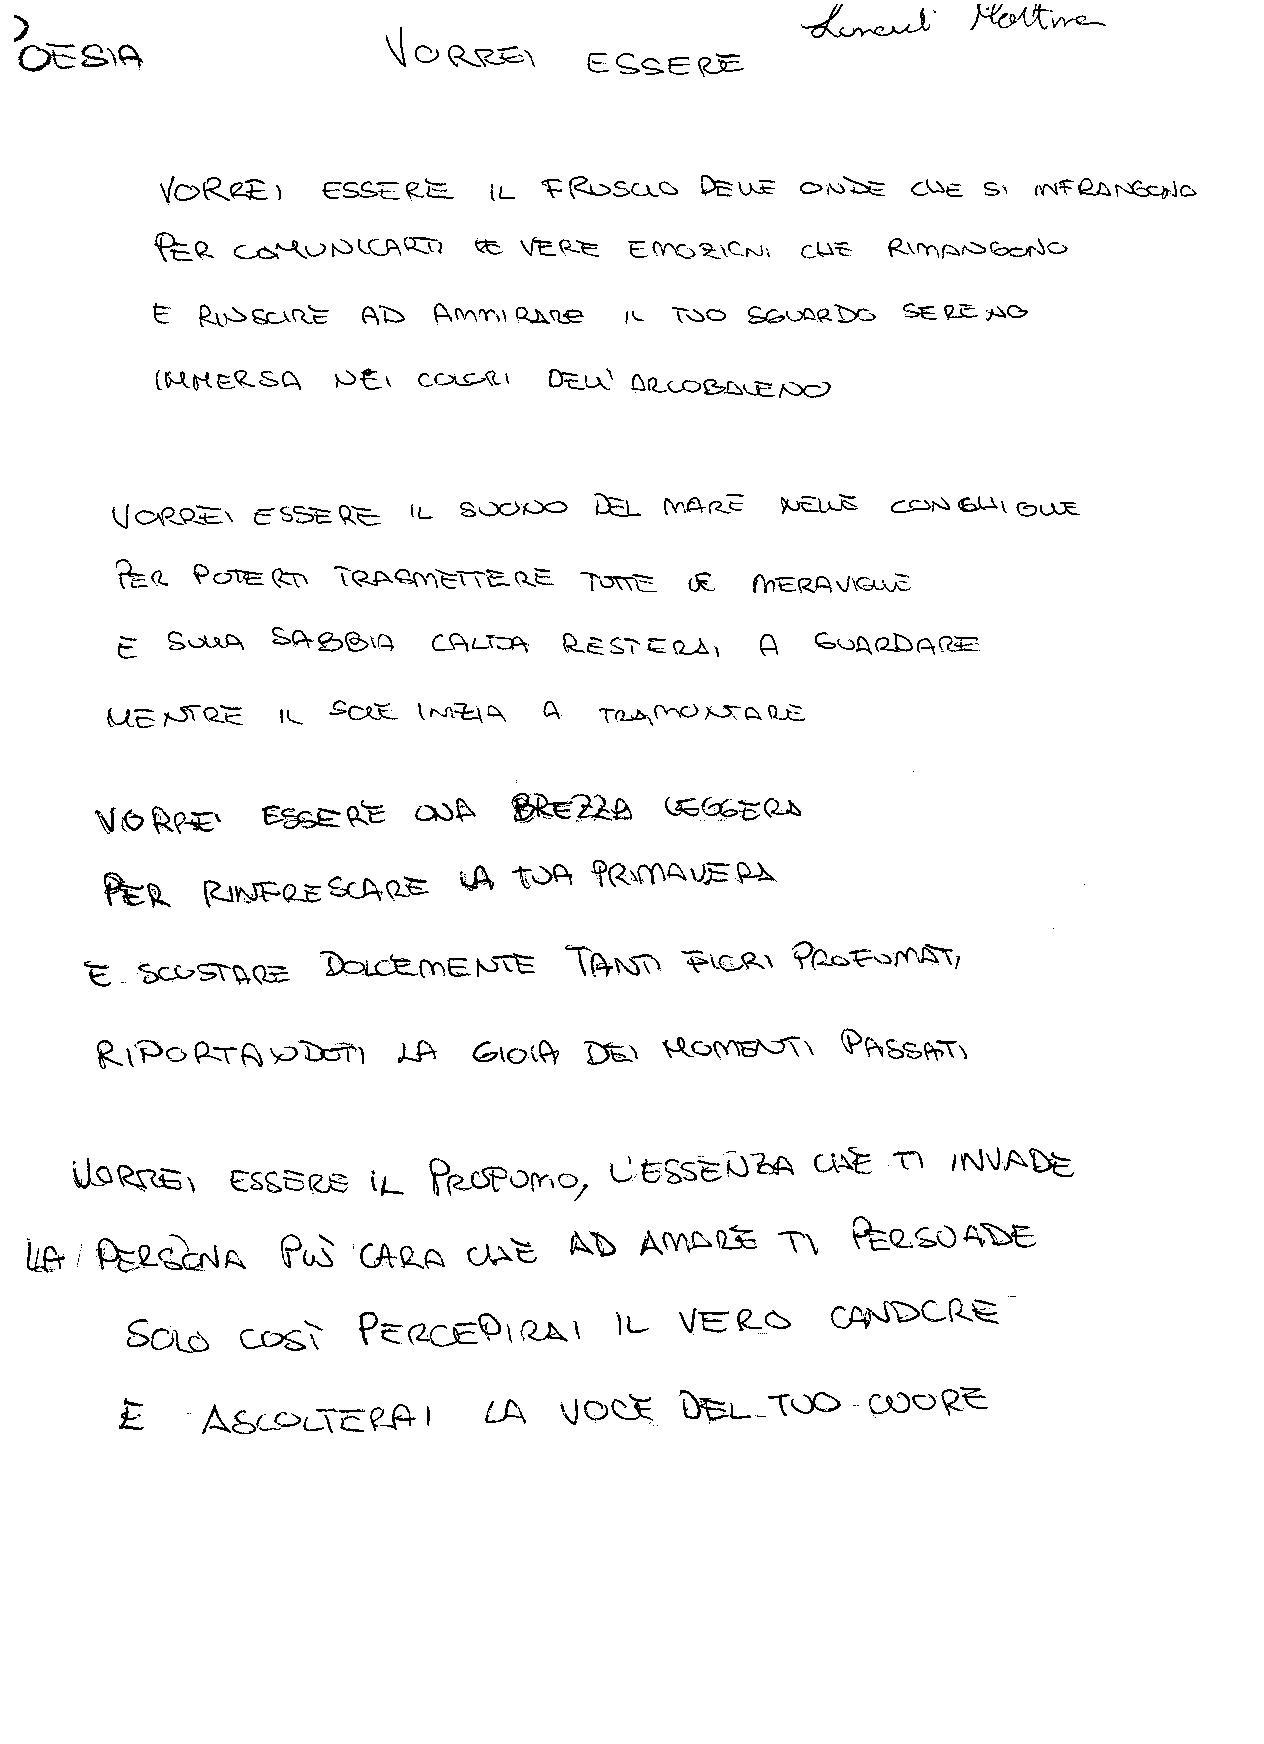 POESIA VORREI ESSERE
VORREI ESSERE IL FRUSCIO DELLE ONDE CHE SI INFRANGONO
PER COMUNICARTI LE VERE EMOZIONI CHE RIMANGONO
E RIUSCIRE AD AMMIRARE IL TUO SGUARDO SERENO
IMMERSA NEI COLORI DELL'ARCOBALENO
VORREI ESSERE IL SUONO DEL MARE NELLE CONCHIGLIE
PER POTERTI TRASMETTERE TUTTE LE MERAVIGLIE
E SULLA SABBIA CALDA RESTERAI A GUARDARE
MENTRE IL SOLE INIZIA A TRAMONTARE
VORREI ESSERE UNA BREZZA LEGGERA
PER RINFRESCARE LA TUA PRIMAVERA
E SCUSTARE DOLCEMENTE TANTI FIORI PROFUMATI
RIPORTANDOTI LA GIOIA DEI MOMENTI PASSATI
VORREI ESSERE IL PROFUMO, L'ESSENZA CHE TI INVADE
LA PERSONA PIÙ CARA CHE AD AMARE TI PERSUADE
SOLO COSÌ PERCEPIRAI IL VERO CANDORE
E ASCOLTERAI LA VOCE DEL TUO CUORE